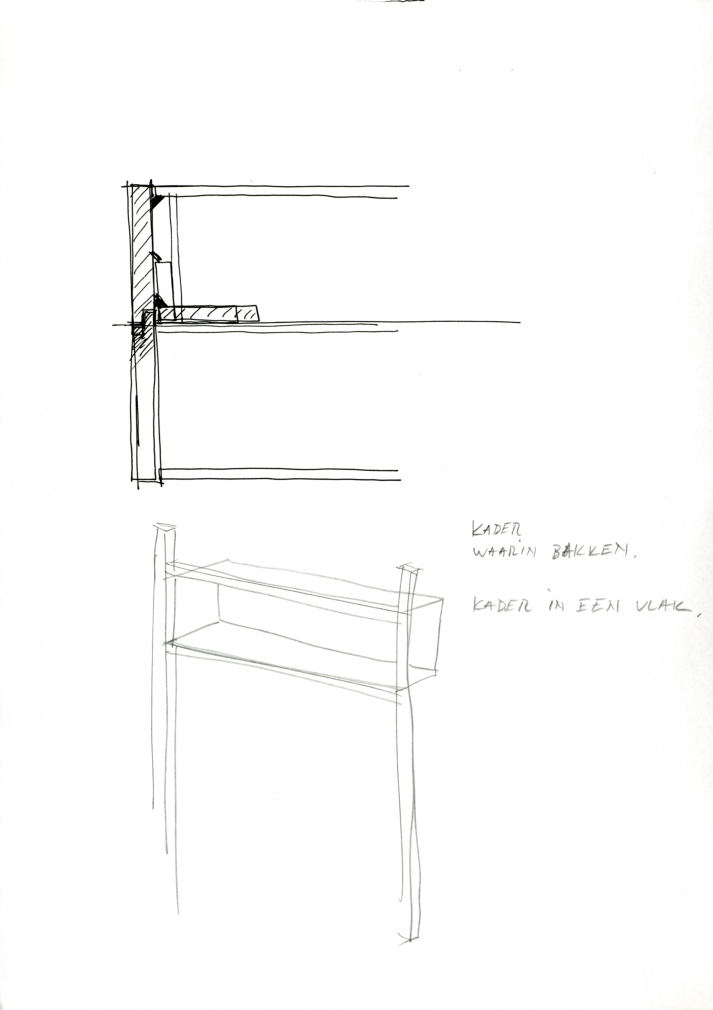 KADER
WAARIN BAKKEN.
KADER IN EEN VLAK.